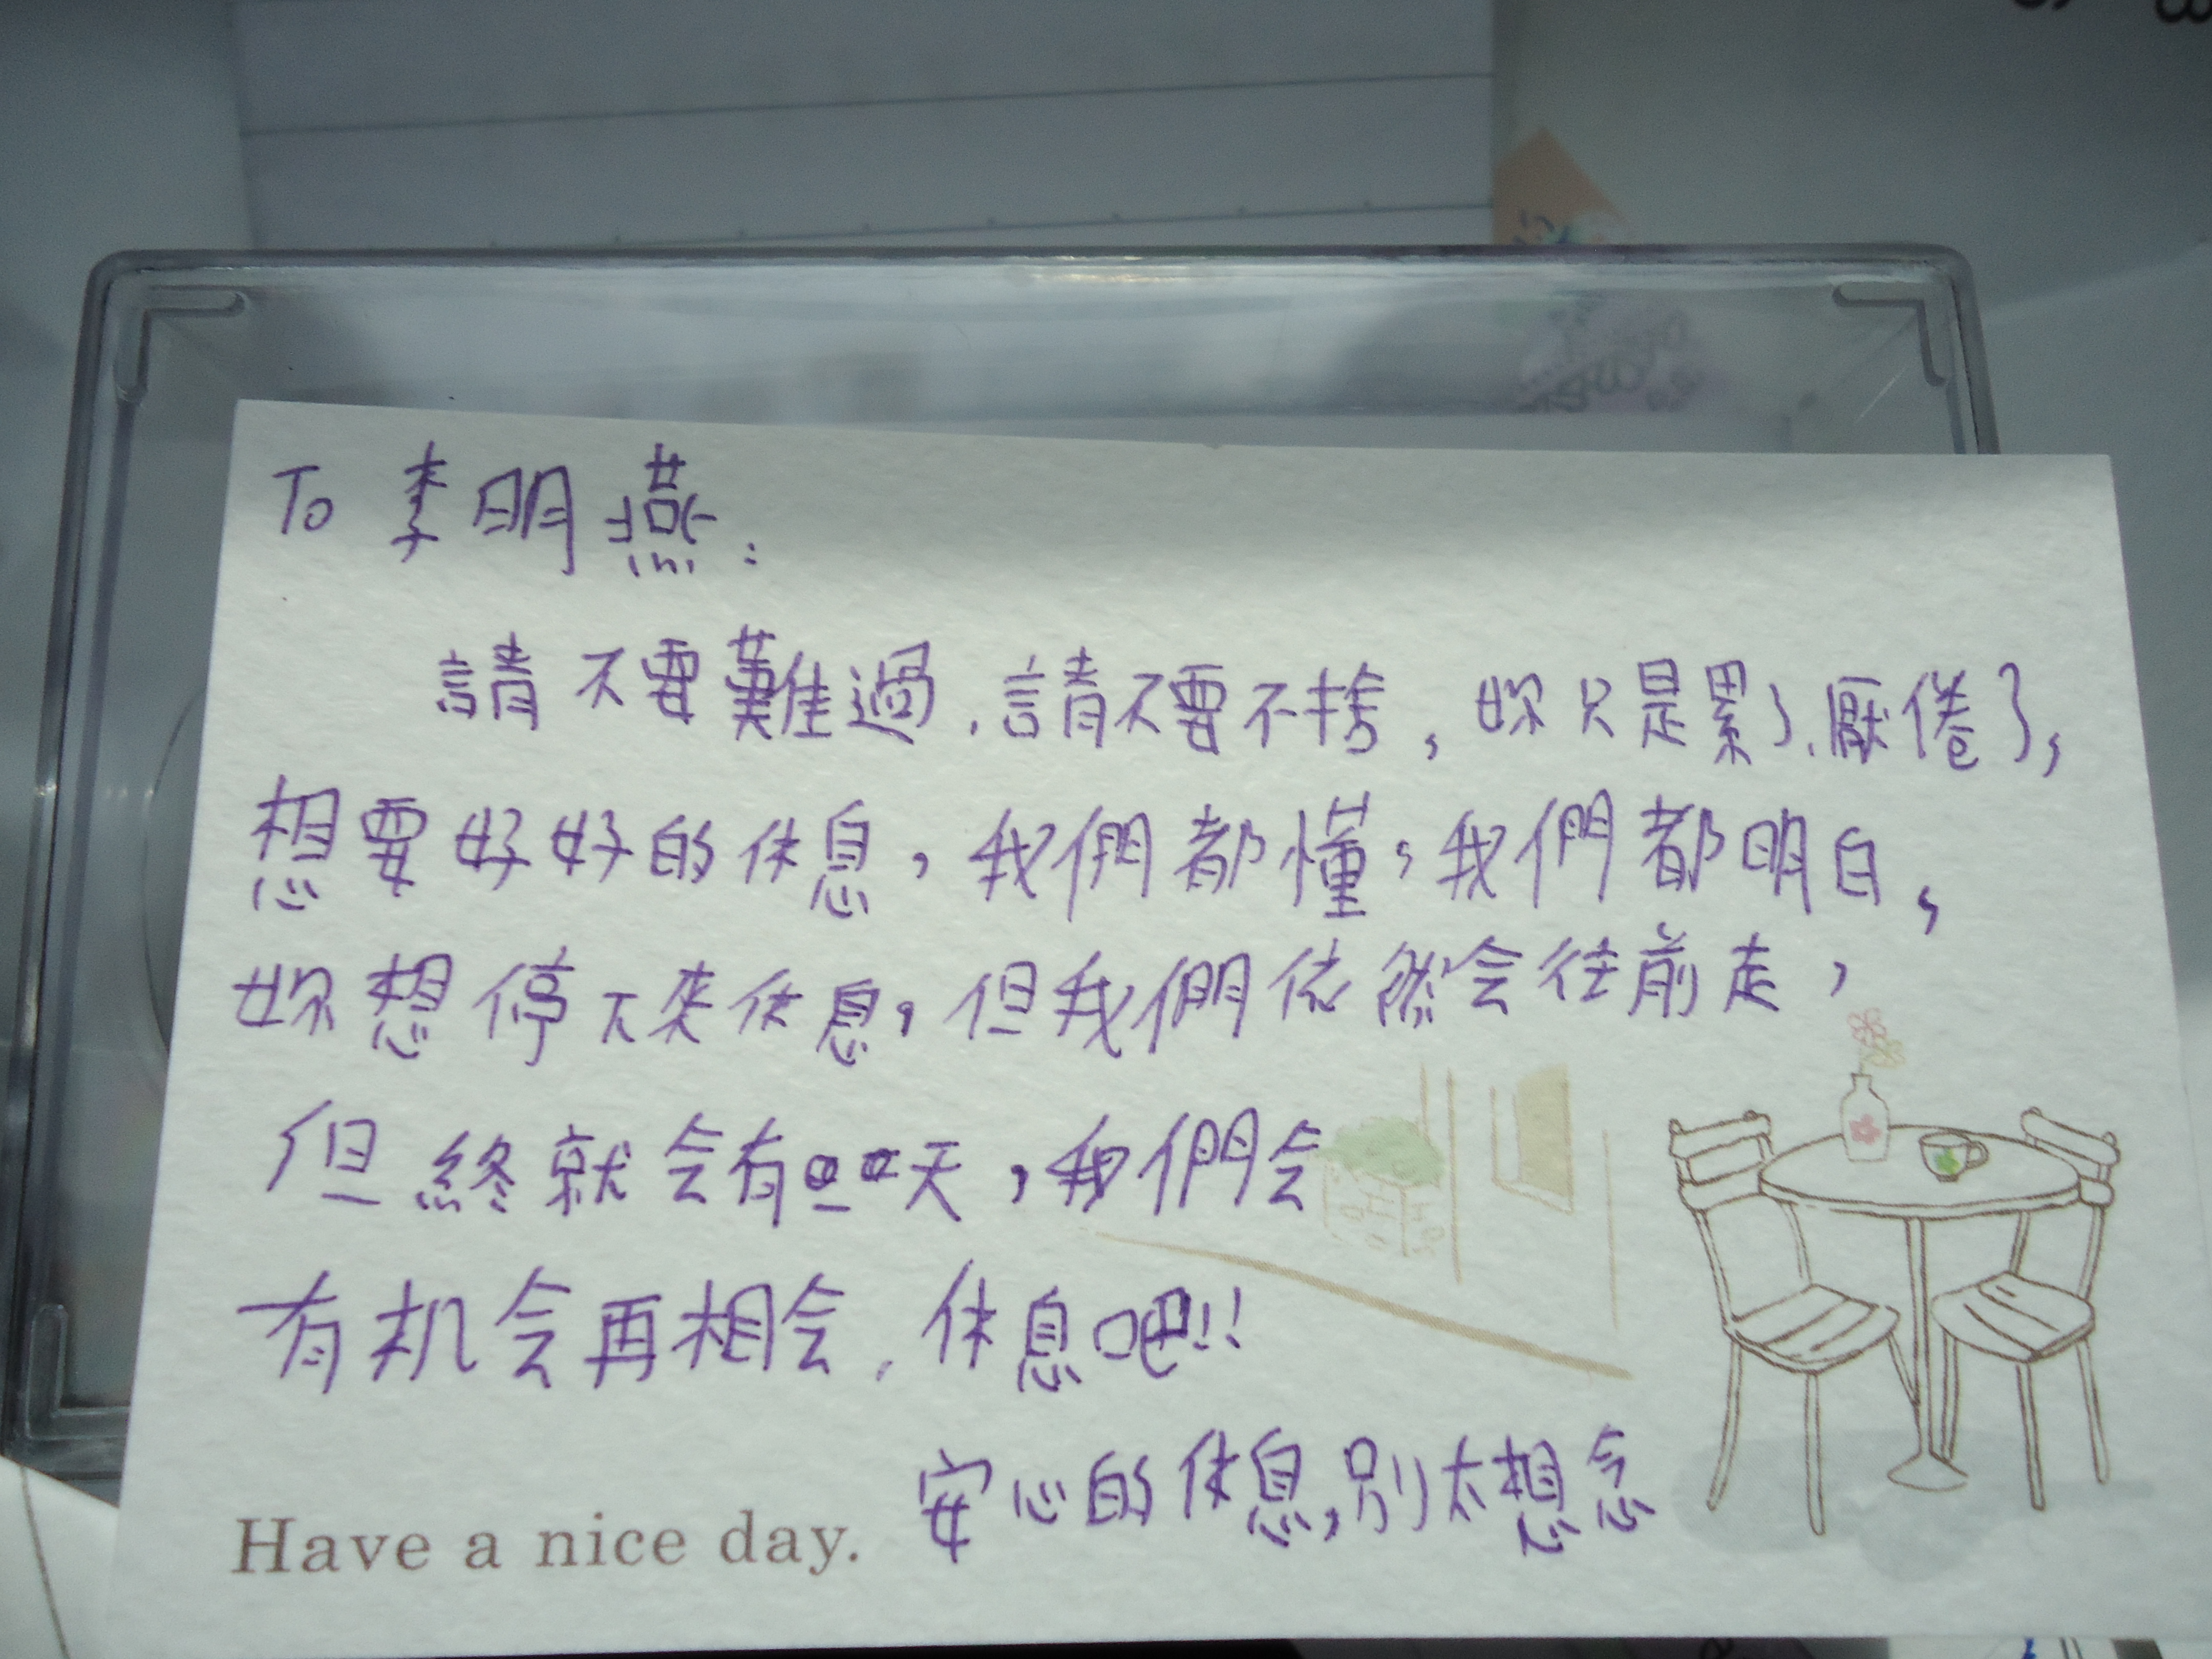 To 李明燕:
請不要難過,請不要不捨,妳只是累了、厭倦了,
想要好好的休息,我們都懂,我們都明白,
妳想停下來休息,但我們依然会往前走,
但終就会有一天,我們会
有机会再相会,休息吧!!
安心的休息,別太想念
Have a nice day.